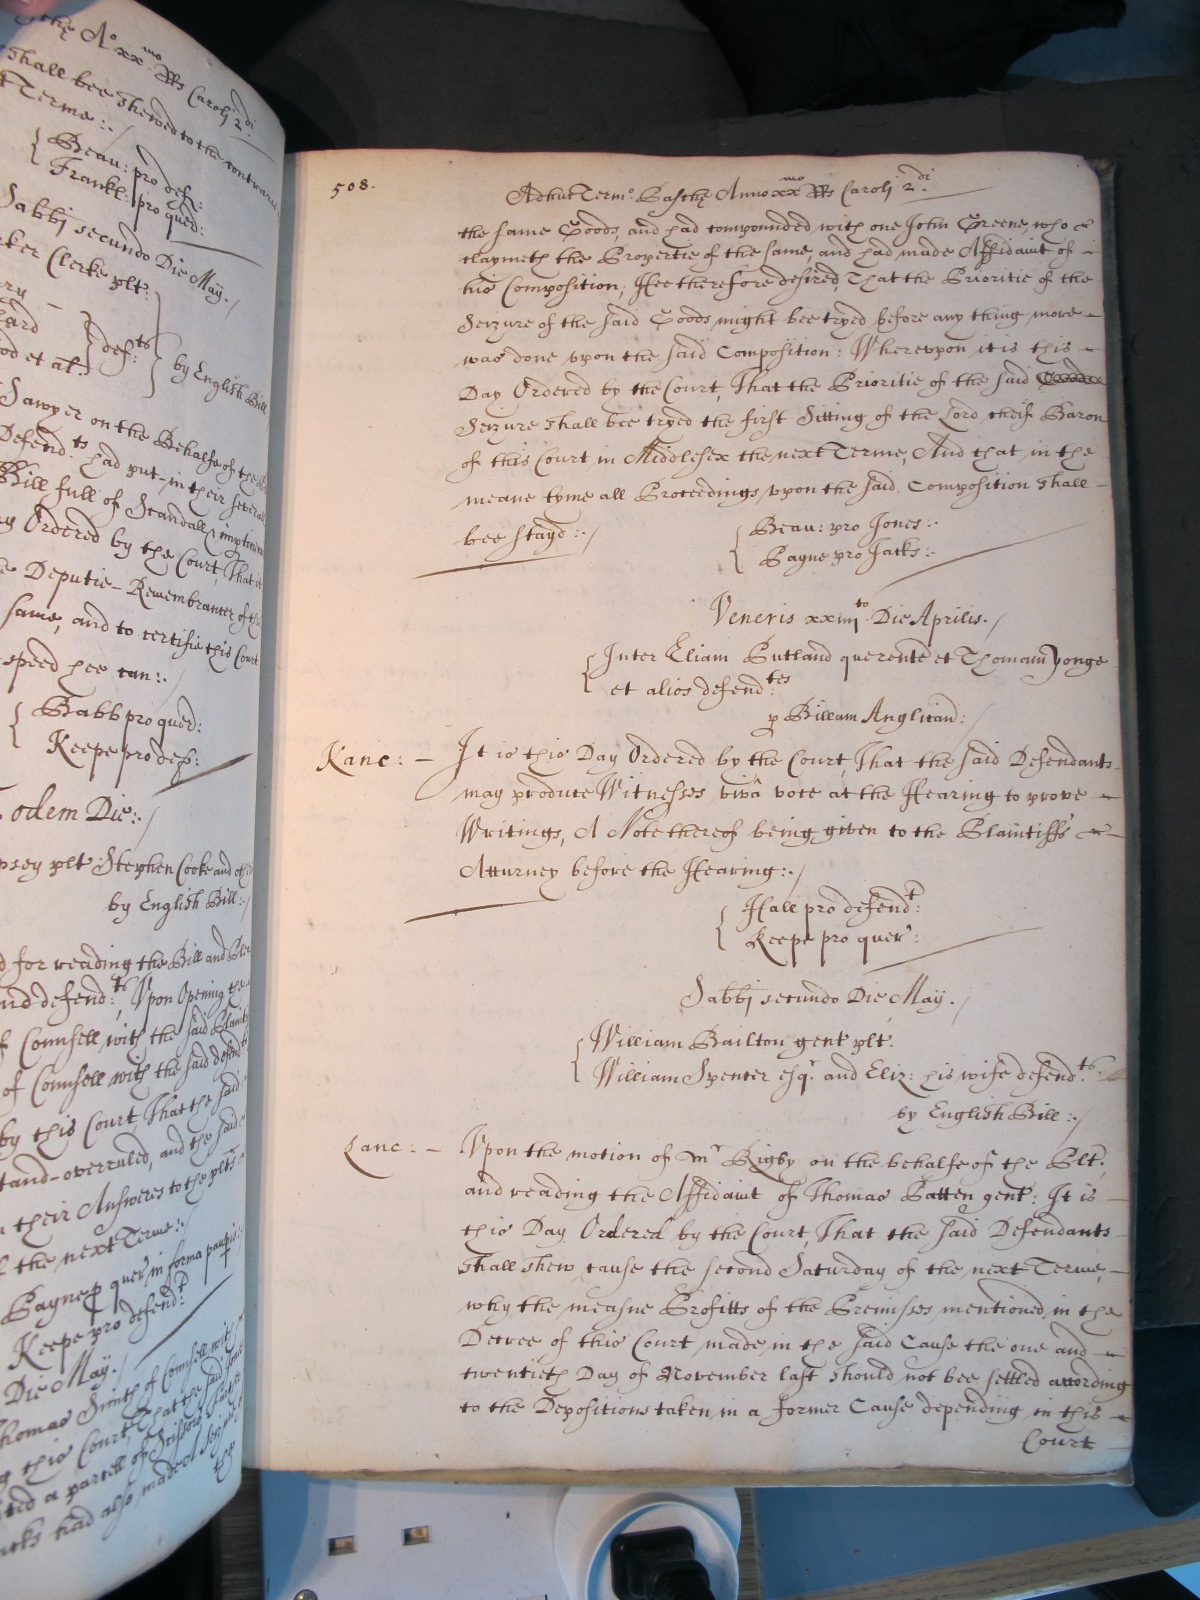 the A.o xx.mo RRs Caroli 2.di
shall bee shewed to the contrary
Terme:./
Beau: pro def:
Frankl: pro quer:
Sabbi secundo Die May./
Clerke plt:
def:ts
by English Bill
et al:
Sawyer on the Behalfe of the
Defend:ts had put in their severall
Bill full of Scandall & impertinent
Ordered by the Court, That it
Deputie-Remembrancer of the
same, and to certifie this Court
speed hee can:./
Babb pro quer:
Keepe pro def:
Eodem Die:./
plt: Stephen Cooke and
by English Bill:./
for reading the Bill and
defend:ts, Upon Opening the
Councell, with the said Plaintiffe
of Councell with the said defend:ts
by this Court, That the said
stand-overruled, and the said
their Answeres to the plts
the next Terme:./
Bayne p quer: in forma paupis:
Keepe pro defend:t
Die May./
Thomas Smith of Councell with
this Court, That the said
a parcell of Scissors
had also made A Seizure
the
508.
Adhuc Term.o Pasche Anno xx.mo RRs Caroli 2.di
the same Goods, and had compounded with one John Greene, who
claymeth the Propertie of the same, and had made Affidavit of
his Composition, Hee therefore desired, That the Prioritie of the
Seizure of the said Goods might bee tryed before any thing more
was done upon the said Composition: Whereupon it is this
Day Ordered by the Court, That the Prioritie of the said
Seizure shall bee tryed the first Sitting of the Lord cheif Baron
of this Court in Middlesex the next Terme, And that in the
meane tyme all Proceedings upon the said Composition shall
bee stayd:./
Beau: pro Jones:.
Bayne pro Jacks:.
Veneris xxiiii.to Die Aprilis./
Inter Eliam Butland querente et Thomam Yonge
et alios defend:tes
p Billam Anglican:/
Kanc: It is this Day Ordered by the Court, That the said Defendants
may produce Witnesses, vivâ voce at the Hearing to prove
Writings, A Note thereof being given to the Plaintiffs
Atturney before the Hearing:./
Hall pro defend:t
Keepe pro quer:
Sabbi secundo Die May./
William Bailton gent plt:
William Spencer esq.r and Eliz: his wife defend:ts
by English Bill:./
Lanc: Upon the motion of M.r Rigby on the behalfe of the Plt:,
and reading the Affidavit of Thomas Batten gent: It is
this Day Ordered by the Court, That the said Defendants
shall shew cause the second Saturday of the next Terme,
why the measne Profitts of the Premisses mentioned in the
Decree of this Court made in the said Cause the one and
twentieth Day of November last should not bee setled according
to the Depositions taken in a former Cause depending in this
Court